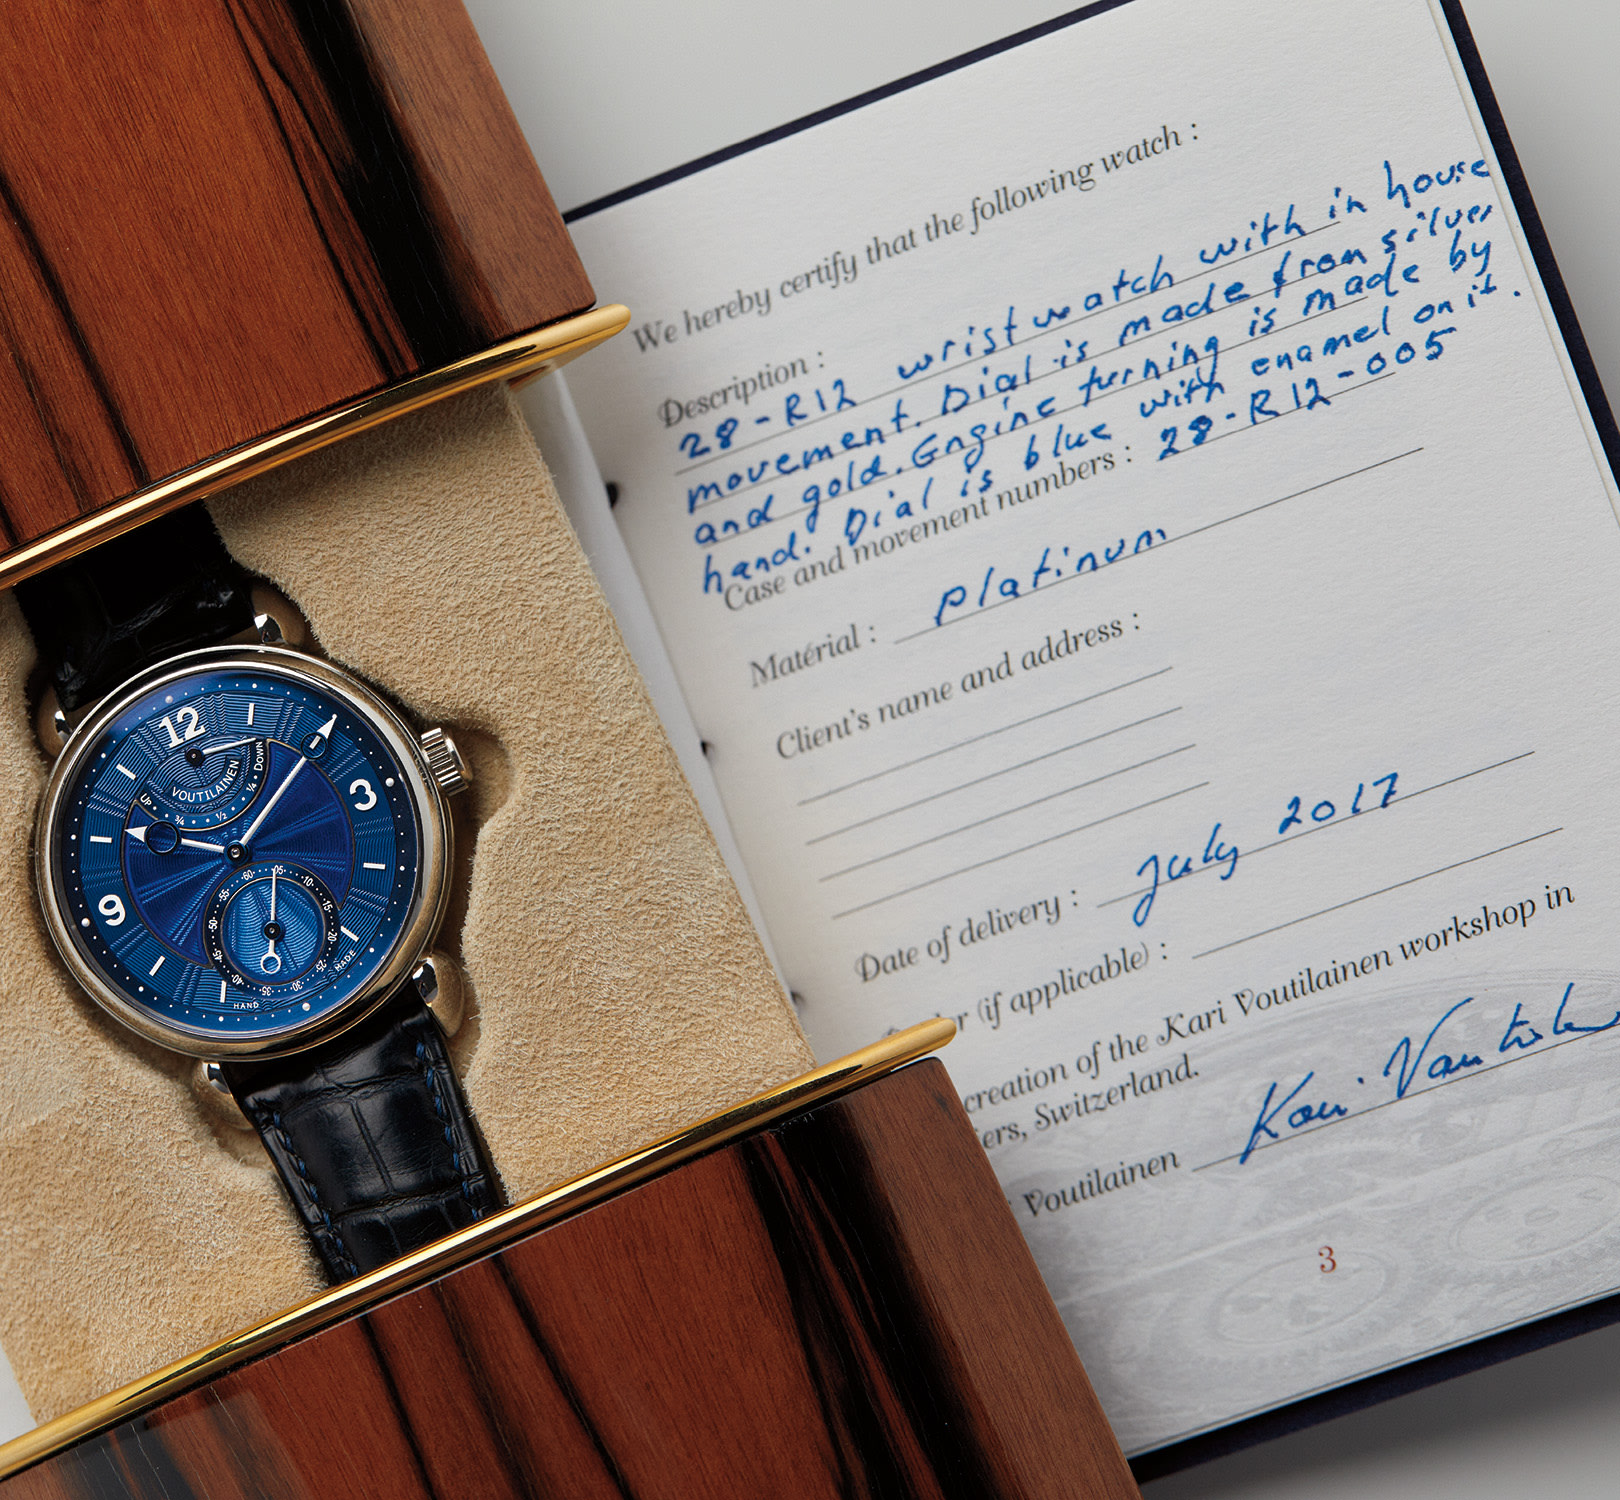 12
VOUTILAINEN
UP
¾
½
¼
DOWN
3
9
60
05
10
15
20
25
30
35
40
45
50
55
HAND
MADE
We hereby certify that the following watch :
Description :
28-R12 wristwatch with in house
movement. Dial is made from silver
and gold. Engine turning is made by
hand. Dial is blue with enamel on it.
Case and movement numbers : 28-R12-005
Matérial : platinum
Client's name and address :
Date of delivery : July 2017
(if applicable) :
creation of the Kari Voutilainen workshop in
Switzerland.
Voutilainen Kari Voutilainen
3